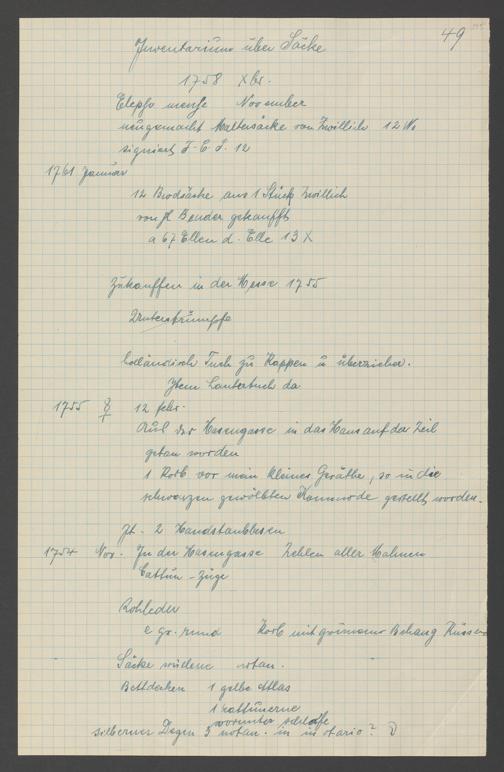 49
Inventarium über Säcke
1758 Xbr.
Elapso mense November
neugemacht Maltersäcke von Zwillich 12
signiert J-C S. 12
1761 Januar
12 Brodsäcke aus 1 Stück Zwillich
von H Bender gekaufft
a 67 Ellen d. Elle 13 X
Zukauffen in der Messe 1755
Unterstrümpfe
holländisch Tuch zu Kappen u überzieher.
Item Lautertuch da
1755 ☿ 12 febr.
Aus der Hasengasse in das Haus auf der Zeil
getan worden
1 Korb vor mein kleines Geräthe, so in die
schwarzen gewölbten Kommode gestellt worden.
It. 2 Handstaubbesen
1754 Nov. In der Hasengasse Zehlen aller
Cattun-Züge
Rohleder
e gr. rund Korb mit grünem Behang
Säcke wüllene notan.
Bettdecken 1 gelbe Atlas
1 kattunerne
worunter schlaffe
silberner Degen 3 notan. in